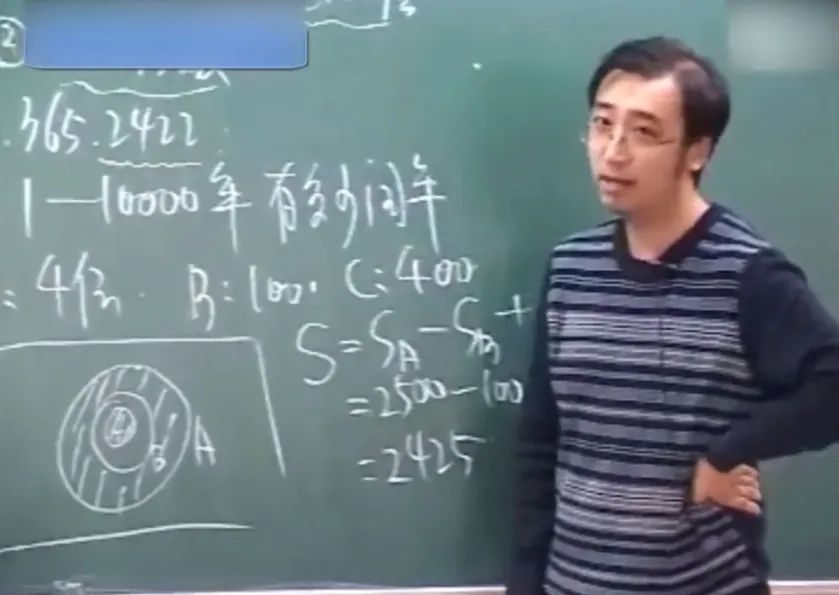 ②
.365.2422.
1—10000年 有多少闰年
= 4倍. B:100. C:400
S=S_A-S_B+
=2500-100
=2425
B A